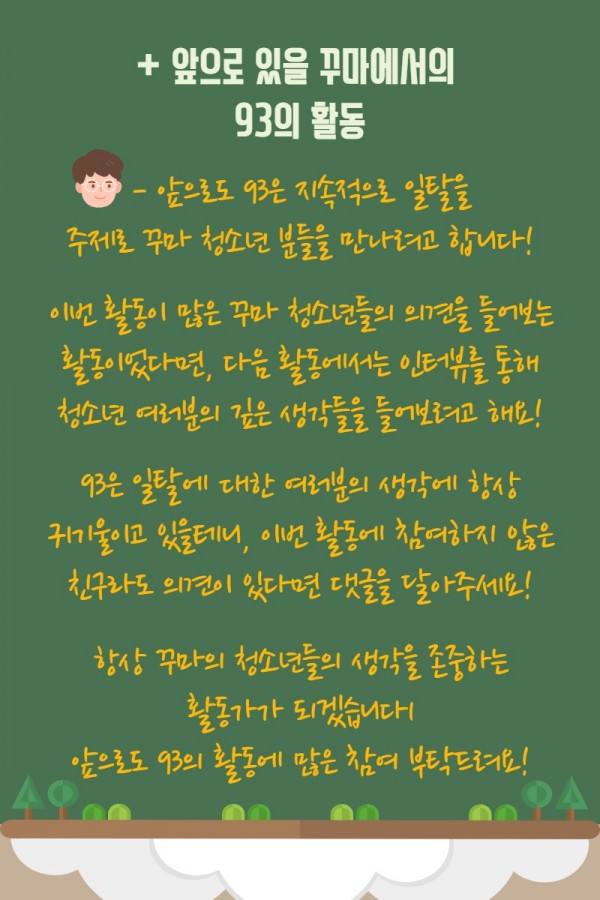 + 앞으로 있을 꾸마에서의
93의 활동
- 앞으로도 93은 지속적으로 일탈을
주제로 꾸마 청소년 분들을 만나려고 합니다!
이번 활동이 많은 꾸마 청소년들의 의견을 들어보는
활동이었다면, 다음 활동에서는 인터뷰를 통해
청소년 여러분의 깊은 생각들을 들어보려고 해요!
93은 일탈에 대한 여러분의 생각에 항상
귀기울이고 있을테니, 이번 활동에 참여하지 않은
친구라도 의견이 있다면 댓글을 달아주세요!
항상 꾸마의 청소년들의 생각을 존중하는
활동가가 되겠습니다!
앞으로도 93의 활동에 많은 참여 부탁드려요!